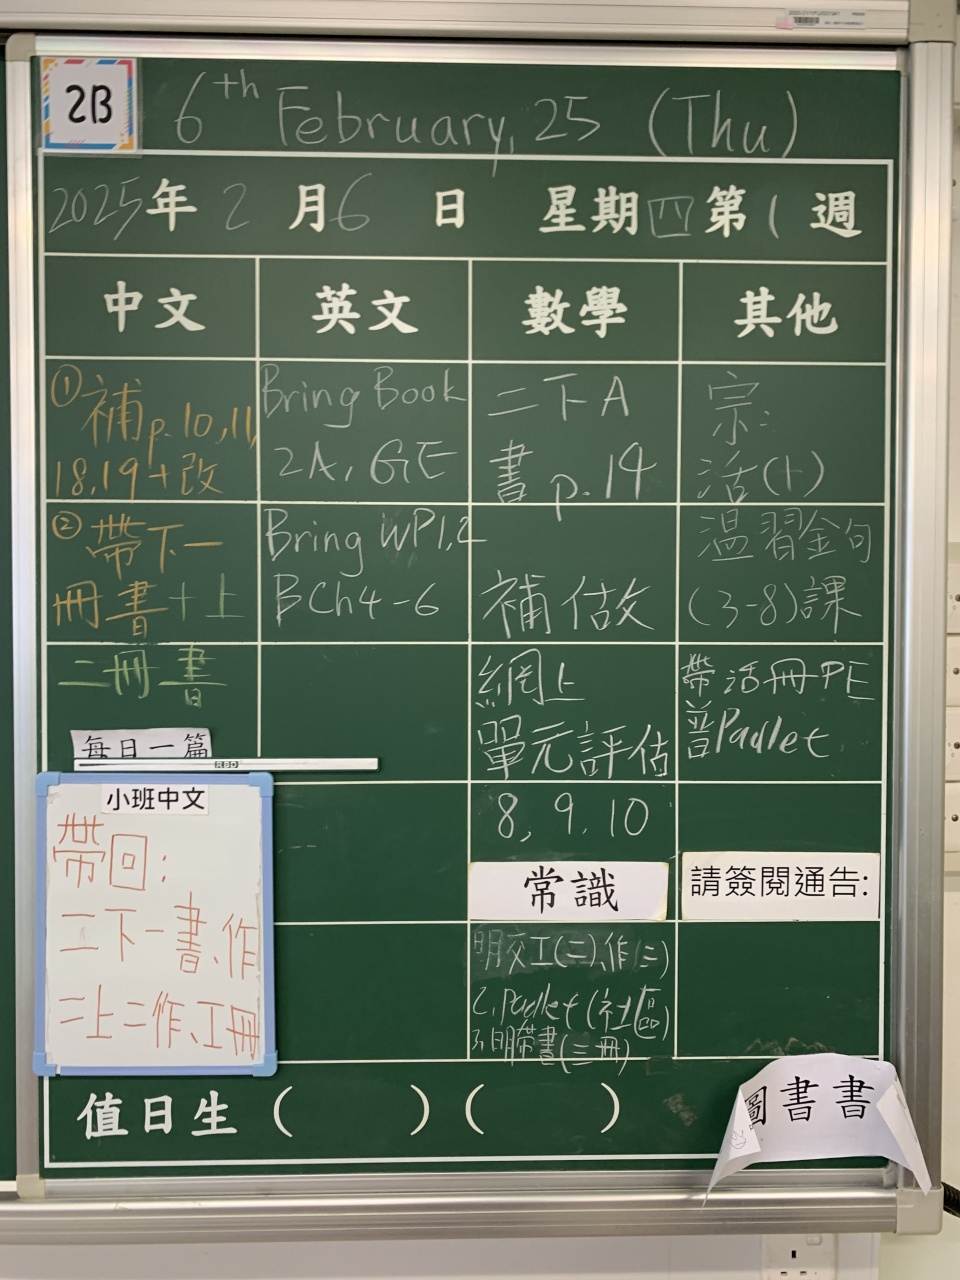 2B
6th February, 25 (Thu)
2025年 2 月 6 日 星期四第1週
中文
①補p.10,11,
18,19+改
②帶下一
冊書+上
二冊書
每日一篇
小班中文
帶回:
二下一書、作
二上二作、工冊
英文
Bring Book
2A, GE
Bring WP1,2
BCh4-6
數學
二下A
書p.14
補估改
網上
單元評估
8, 9, 10
常識
明交工(三)、作(三)
2. Padlet (社區)
3. 明帶書(三冊)
其他
宗:
活(十)
温習金句
(3-8)課
帶活冊PE
普Padlet
請簽閱通告:
值日生 ( ) ( )
圖書書